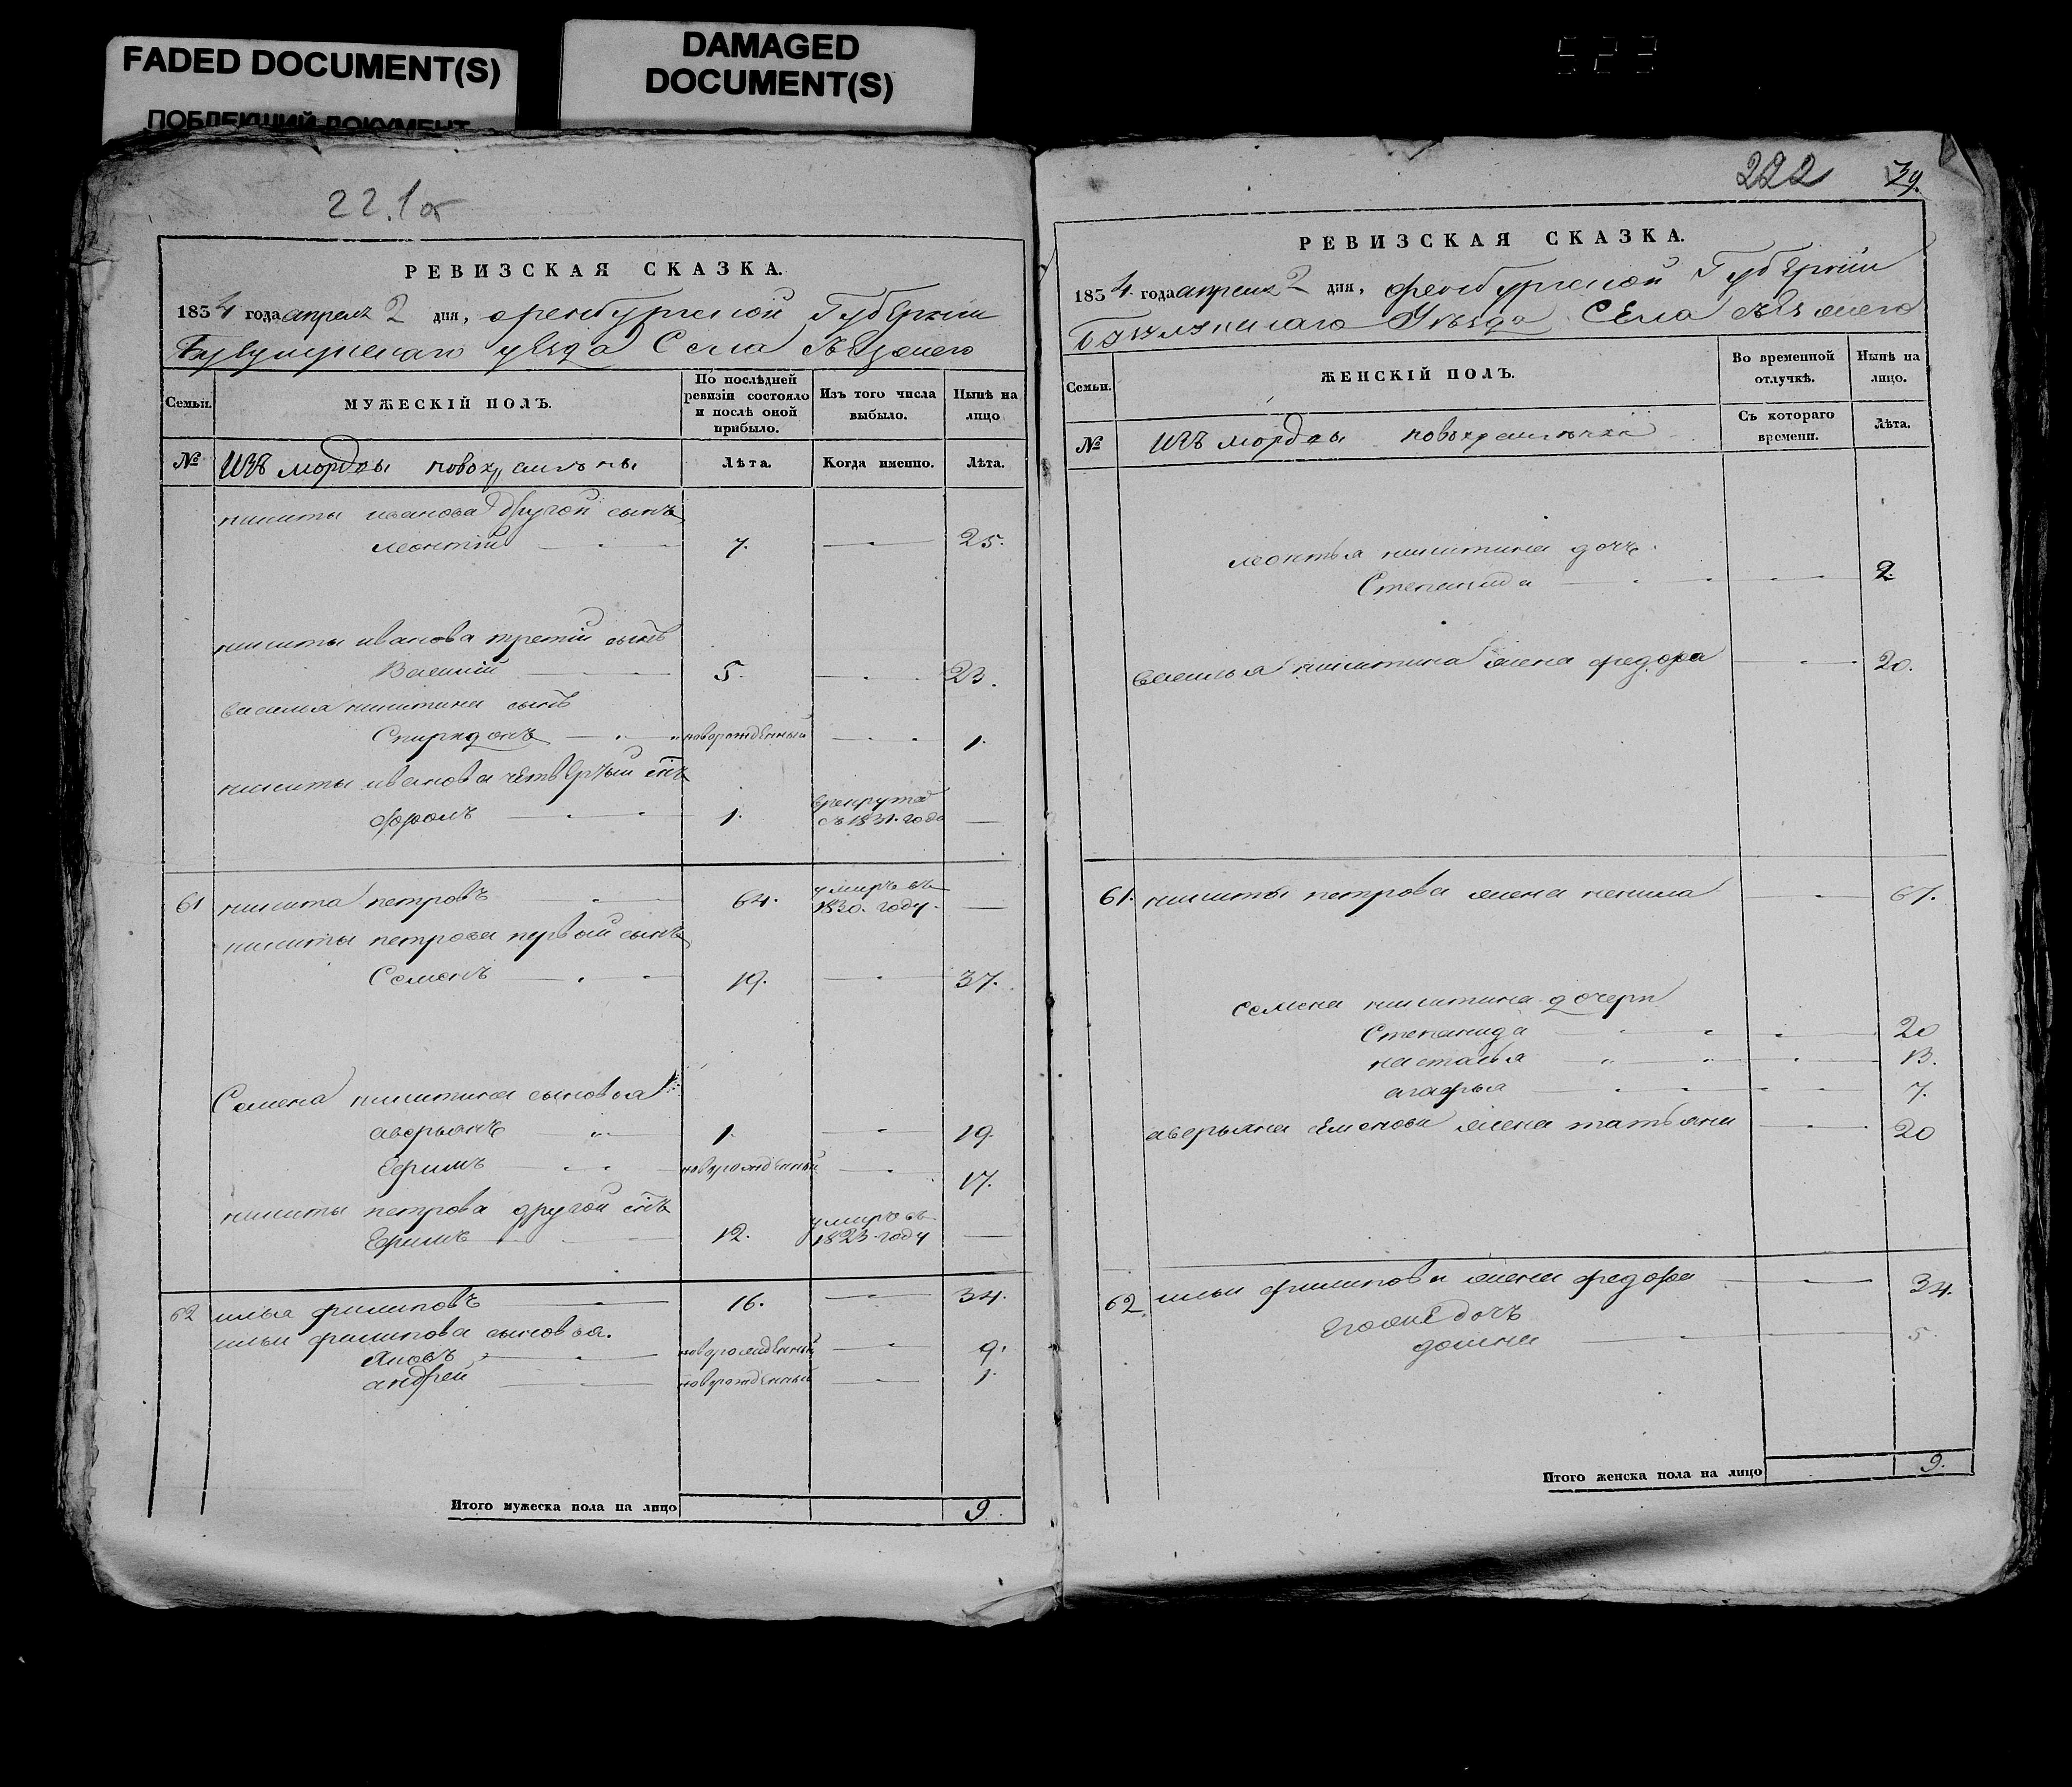 FADED DOCUMENT(S)
ПОБЛЕКШИЙ ДОКУМЕНТ
DAMAGED
DOCUMENT(S)
523
221 об
РЕВИЗСКАЯ СКАЗКА.
1834 года апреля 2 дня, оренбургской Губернии
уезда Села
Семьи.
МУЖЕСКІЙ ПОЛЪ.
По послѣдней ревизіи состояло и послѣ оной прибыло.
Изъ того числа выбыло.
Нынѣ на лицо
№
Изъ мордвы новокрещены
Лѣта.
Когда именно.
Лѣта.
никиты иванова другой сынъ
леонтій 7. 25.
никиты иванова третій сынъ
Василий 5. 23.
василья никитина сынъ
Спиридонъ новорожденный 1.
никиты иванова четвертый снъ
1. врекруты
съ 1831. года
61 никита петровъ 64. умеръ въ
1830. году
никиты петрова первый сынъ
Семенъ 19. 37.
Семена никитина сыновья:
аверьянъ 1. 19.
Ефимъ новорожденный 17.
никиты петрова другой снъ
Ефимъ 12. умеръ въ
1823 году
62 илья филиповъ 16. 34.
ильи филипова сыновья.
Яковъ новорожденный 9.
андрей новорожденный 1
Итого мужеска пола на лицо 9.
222 39.
РЕВИЗСКАЯ СКАЗКА.
1834 года апреля 2 дня, оренбургской Губернии
Уезда Села
Семьи.
ЖЕНСКІЙ ПОЛЪ.
Во временной отлучкѣ.
Нынѣ на лицо.
№
изъ мордвы новокрещенки
Съ котораго времени.
Лѣта.
леонтья никитина дочь.
Степанида 2.
василья никитина жена федора 20.
61. никиты петрова жена ненила 67.
семена никитина дочери
Степанида 20
настасья 13.
агафья 7.
аверьяна семенова жена татьяна 20
62 ильи филипова жена федора 34.
егожъ дочь
5.
Итого женска пола на лицо 9.